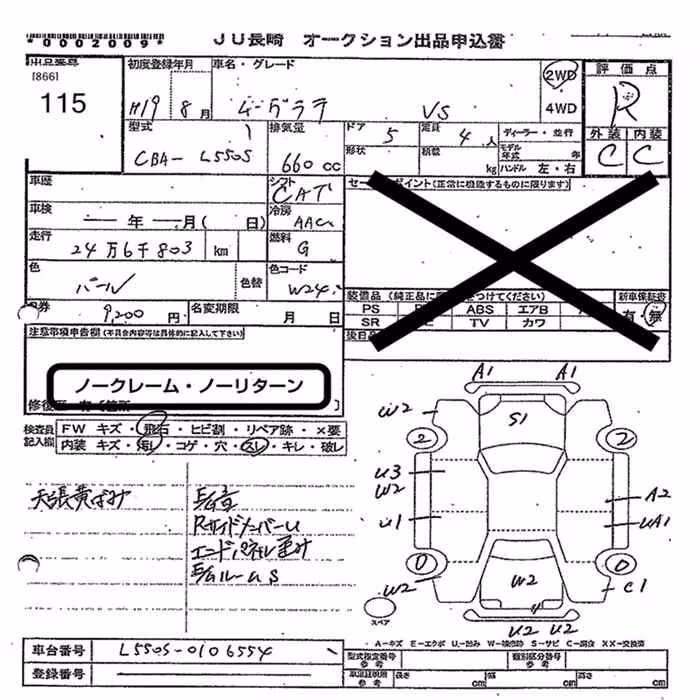 *0002009*
JU長崎 オークション出品申込書
[866]
115
初度登録年月
H19 8月
車名・グレード
ムーヴラテ VS
2WD
4WD
評価点
R
外装 内装
C C
型式
CBA- L550S
排気量
660 cc
ドア 5
定員 4人
ディーラー・並行
形状
積載 kg
モデル年式 年
ハンドル 左・右
車歴
シフト
CAT
車検
年 月( 日)
冷房
AAC
走行
24万6千803 km
燃料
G
色
パール
色替
色コード
W24
9,200円
名変期限
月 日
セールスポイント(正常に機能するものに限ります)
装備品(純正品に
をつけてください)
新車保証書
PS
ABS エアB
有・無
SR
TV カワ
注意事項申告欄(不具合内容等は具体的に記入して下さい)
ノークレーム・ノーリターン
検査員記入欄
FW キズ・飛石・ヒビ割・リペア跡・×要
内装 キズ・汚レ・コゲ・穴・スレ・キレ・破レ
天張黄ばみ
RサイドメンバーU
エンドパネル
ルームS
A1 A1
W2
S1
2 2
U3
W2
A2
U1
UA1
0 0
W2
W2
C1
U2 U2
スペア
A−キズ E−エクボ U−凹み W−補修跡 S−サビ C−腐食 XX−交換済
車台番号
L550S-0106554
登録番号
型式指定番号
参考
類別区分番号
参考
車庫証明用
参考
長さ cm
幅 cm
高さ cm